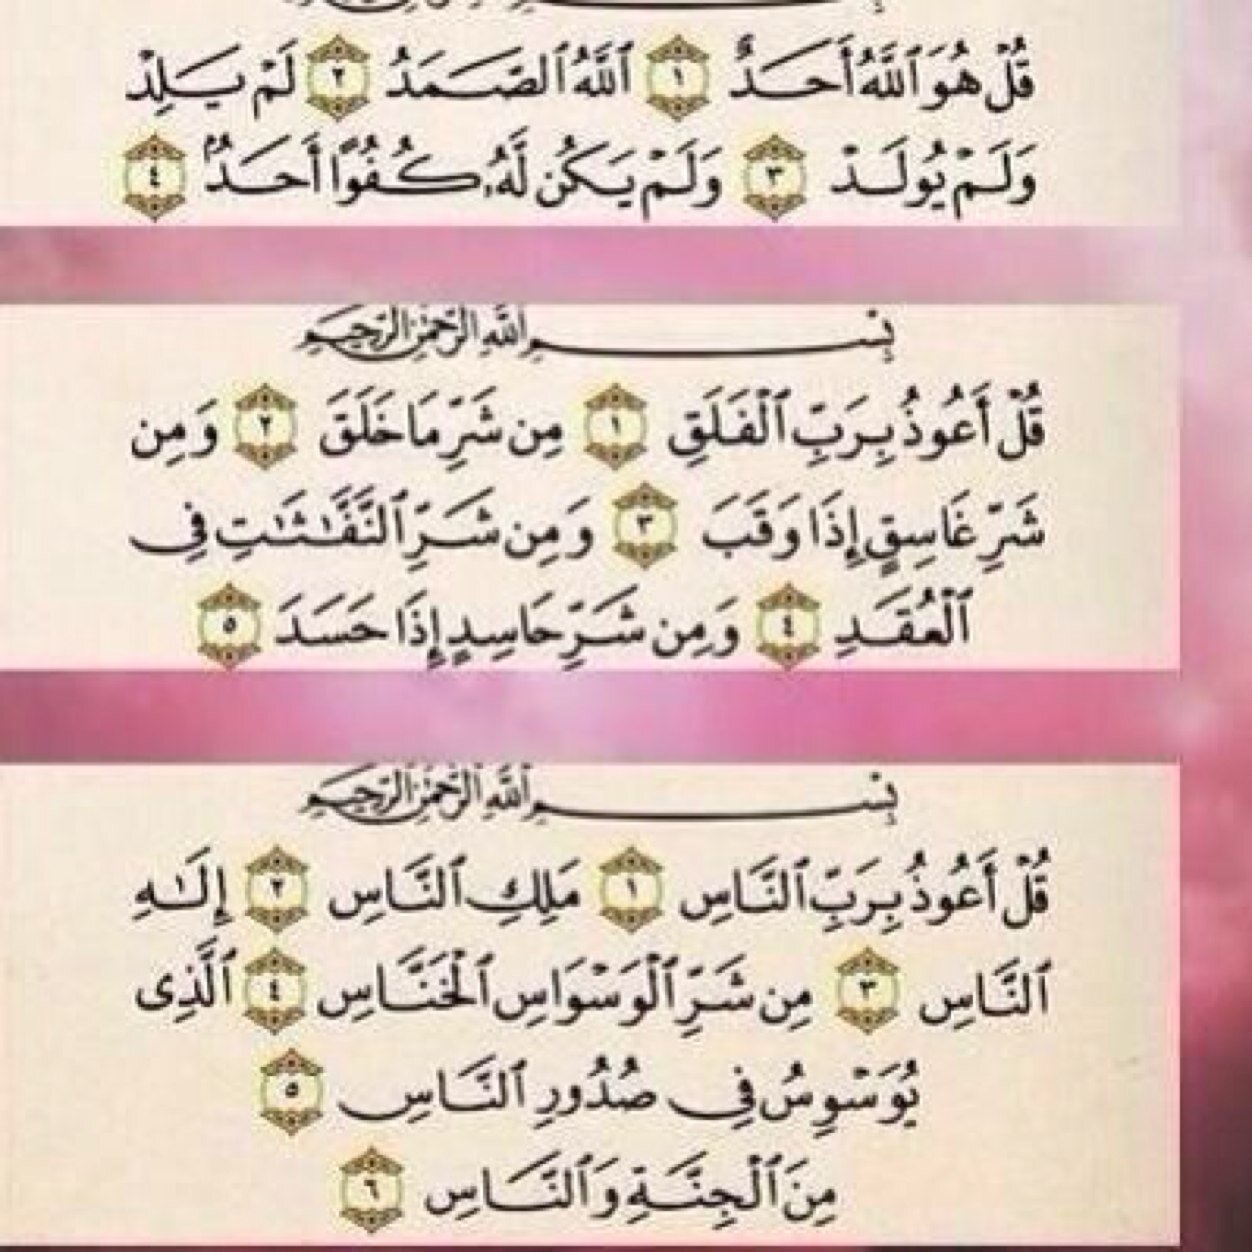 قُلْ هُوَ ٱللَّهُ أَحَدٌ ١ ٱللَّهُ ٱلصَّمَدُ ٢ لَمْ يَلِدْ
وَلَمْ يُولَدْ ٣ وَلَمْ يَكُن لَّهُۥ كُفُوًا أَحَدٌۢ ٤
بِسْمِ ٱللَّهِ ٱلرَّحْمَٰنِ ٱلرَّحِيمِ
قُلْ أَعُوذُ بِرَبِّ ٱلْفَلَقِ ١ مِن شَرِّ مَا خَلَقَ ٢ وَمِن
شَرِّ غَاسِقٍ إِذَا وَقَبَ ٣ وَمِن شَرِّ ٱلنَّفَّٰثَٰتِ فِى
ٱلْعُقَدِ ٤ وَمِن شَرِّ حَاسِدٍ إِذَا حَسَدَ ٥
بِسْمِ ٱللَّهِ ٱلرَّحْمَٰنِ ٱلرَّحِيمِ
قُلْ أَعُوذُ بِرَبِّ ٱلنَّاسِ ١ مَلِكِ ٱلنَّاسِ ٢ إِلَٰهِ
ٱلنَّاسِ ٣ مِن شَرِّ ٱلْوَسْوَاسِ ٱلْخَنَّاسِ ٤ ٱلَّذِى
يُوَسْوِسُ فِى صُدُورِ ٱلنَّاسِ ٥
مِنَ ٱلْجِنَّةِ وَٱلنَّاسِ ٦